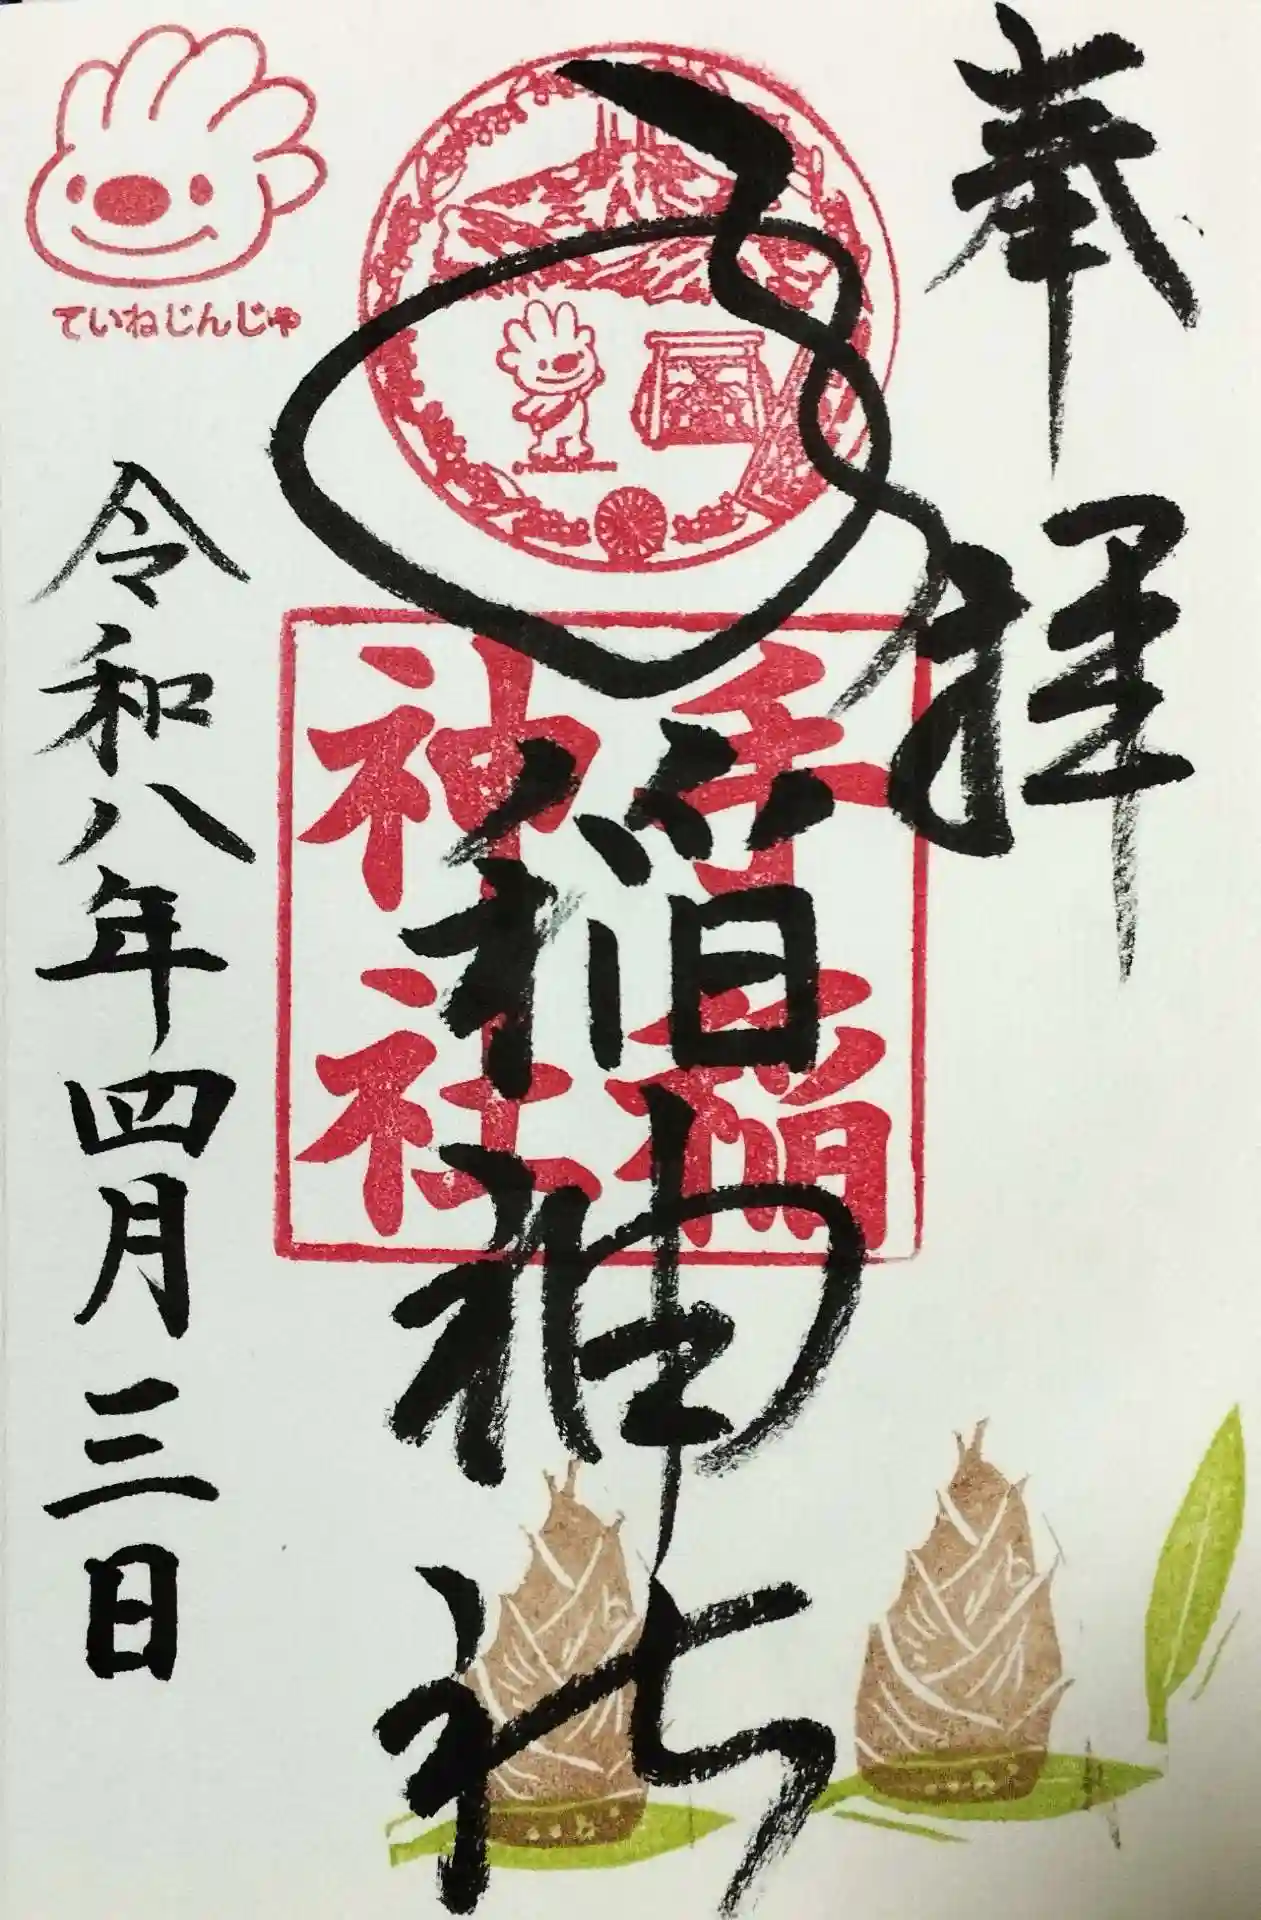 奉拝
手稲神社
手稲
神社
ていねじんじゃ
令和八年四月三日